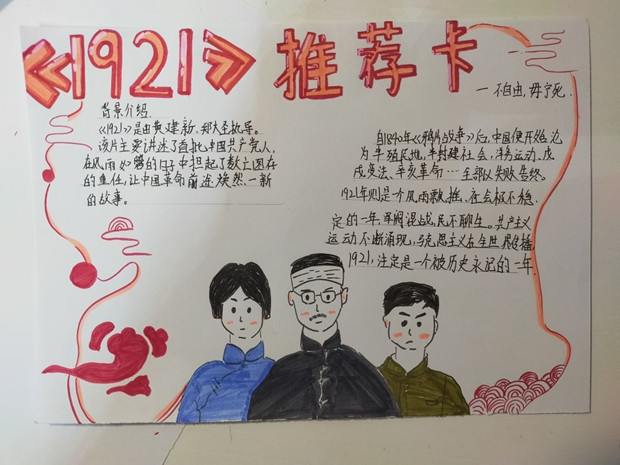 《1921》推荐卡
—不自由,毋宁死.
背景介绍.
《1921》是由黄建新、郑大圣执导。
该片主要讲述了首批中国共产党人,
在风雨如磐的日子中担起了救亡图存
的重任,让中国革命前途焕然一新
的故事。
自1840年《鸦片战争》后,中国便开始沦
为半殖民地,半封建社会,洋务运动、戊
戌变法、辛亥革命…全部以失败告终.
1921年则是个风雨飘摇,社会极不稳
定的一年.军阀混战,民不聊生。共产主义
运动不断涌现,马克思主义在全世界传播.
1921,注定是一个被历史永记的一年.